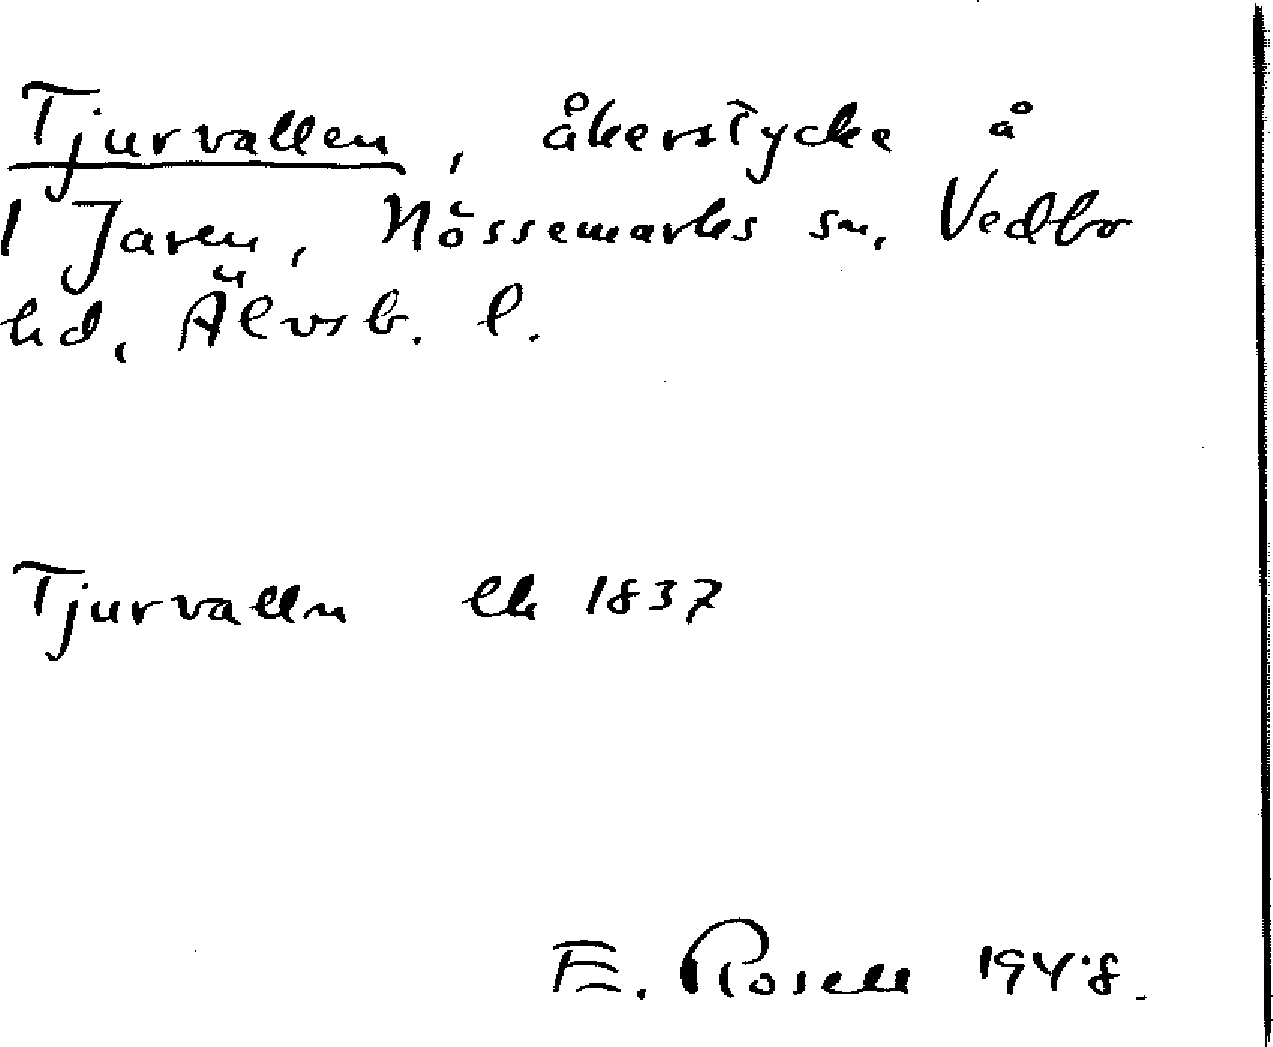 Tjurvallen, åkerstycke å
1 Jaren, Nössemarks sn, Vedbo
hd, Älvsb. l.
Tjurvalln lk 1837
E. Rosell 1948.